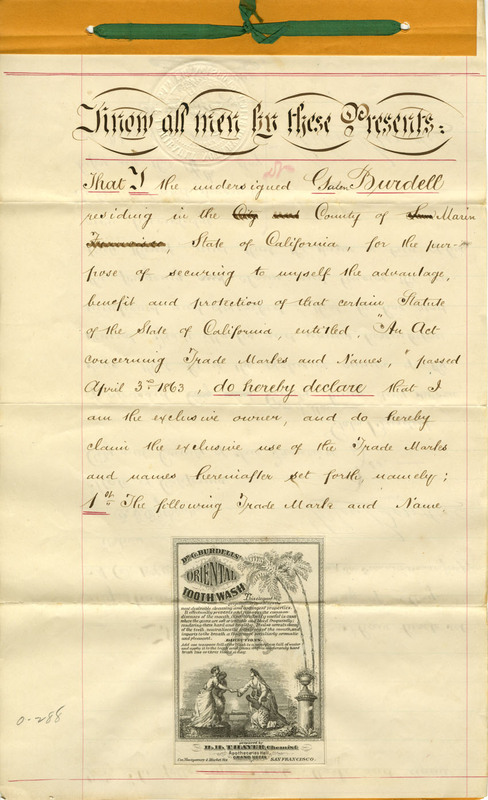 Know all men by these Presents:
That I the undersigned Galen Burdell
residing in the City and County of San Marin
Francisco, State of California, for the pur-
pose of securing to myself the advantage,
benefit and protection of that certain Statute
of the State of California, entitled, "An Act
concerning Trade Marks and Names," passed
April 3d 1863, do hereby declare that I
am the exclusive owner, and do hereby
claim the exclusive use of the Trade Marks
and names hereinafter set forth namely;
1st The following Trade Mark and Name
DR. G. BURDELL'S
ORIENTAL
TOOTH WASH
most desirable cleansing and astringent properties.
DIRECTIONS.
prepared by
H. H. THAYER, Chemist
Apothecaries Hall,
GRAND HOTEL
Cor. Montgomery & Market Sts. SAN FRANCISCO.
0-288